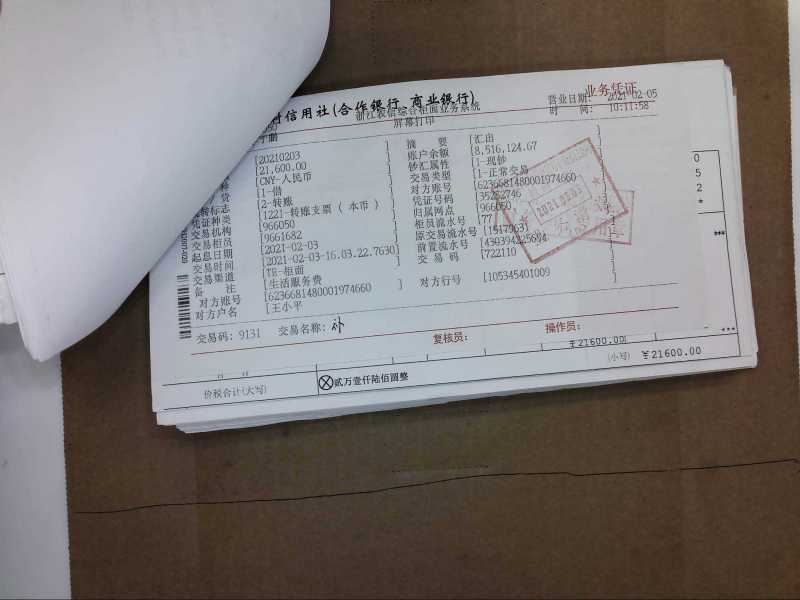 村信用社(合作银行、商业银行)
业务凭证
浙江农信综合柜面业务系统
营业日期: 2021-02-05
屏幕打印
时 间: 10:11:58
[20210203 ] 摘 要 [汇出 ]
[21,600.00 ] 账户余额 [8,516,124.67
[CNY-人民币 ] 钞汇属性 [1-现钞
[1-借 ] 交易类型 [1-正常交易
[2-转账 ] 对方账号 [6236681480001974660
凭证种类 [1221-转账支票 ( 本币 ) ] 凭证号码 [35252746
交易机构 [966050 ] 归属网点 [966050
交易柜员 [9661682 ] 柜员流水号 [77
起息日期 [2021-02-03 ] 原交易流水号 [1517063]
交易时间 [2021-02-03-16.03.22.7630] 前置流水号 [430394225694
交易渠道 [TE-柜面 ] 交 易 码 [722110
备 注 [生活服务费 ]
对方账号 [6236681480001974660 ] 对方行号 [105345401009 ]
对方户名 [王小平 ]
交易码: 9131 交易名称: 补
复核员: 操作员:
2021.02.03
0
5
2
*
***
¥21600.00
价税合计(大写) ⊗贰万壹仟陆佰圆整 (小写) ¥21600.00
***